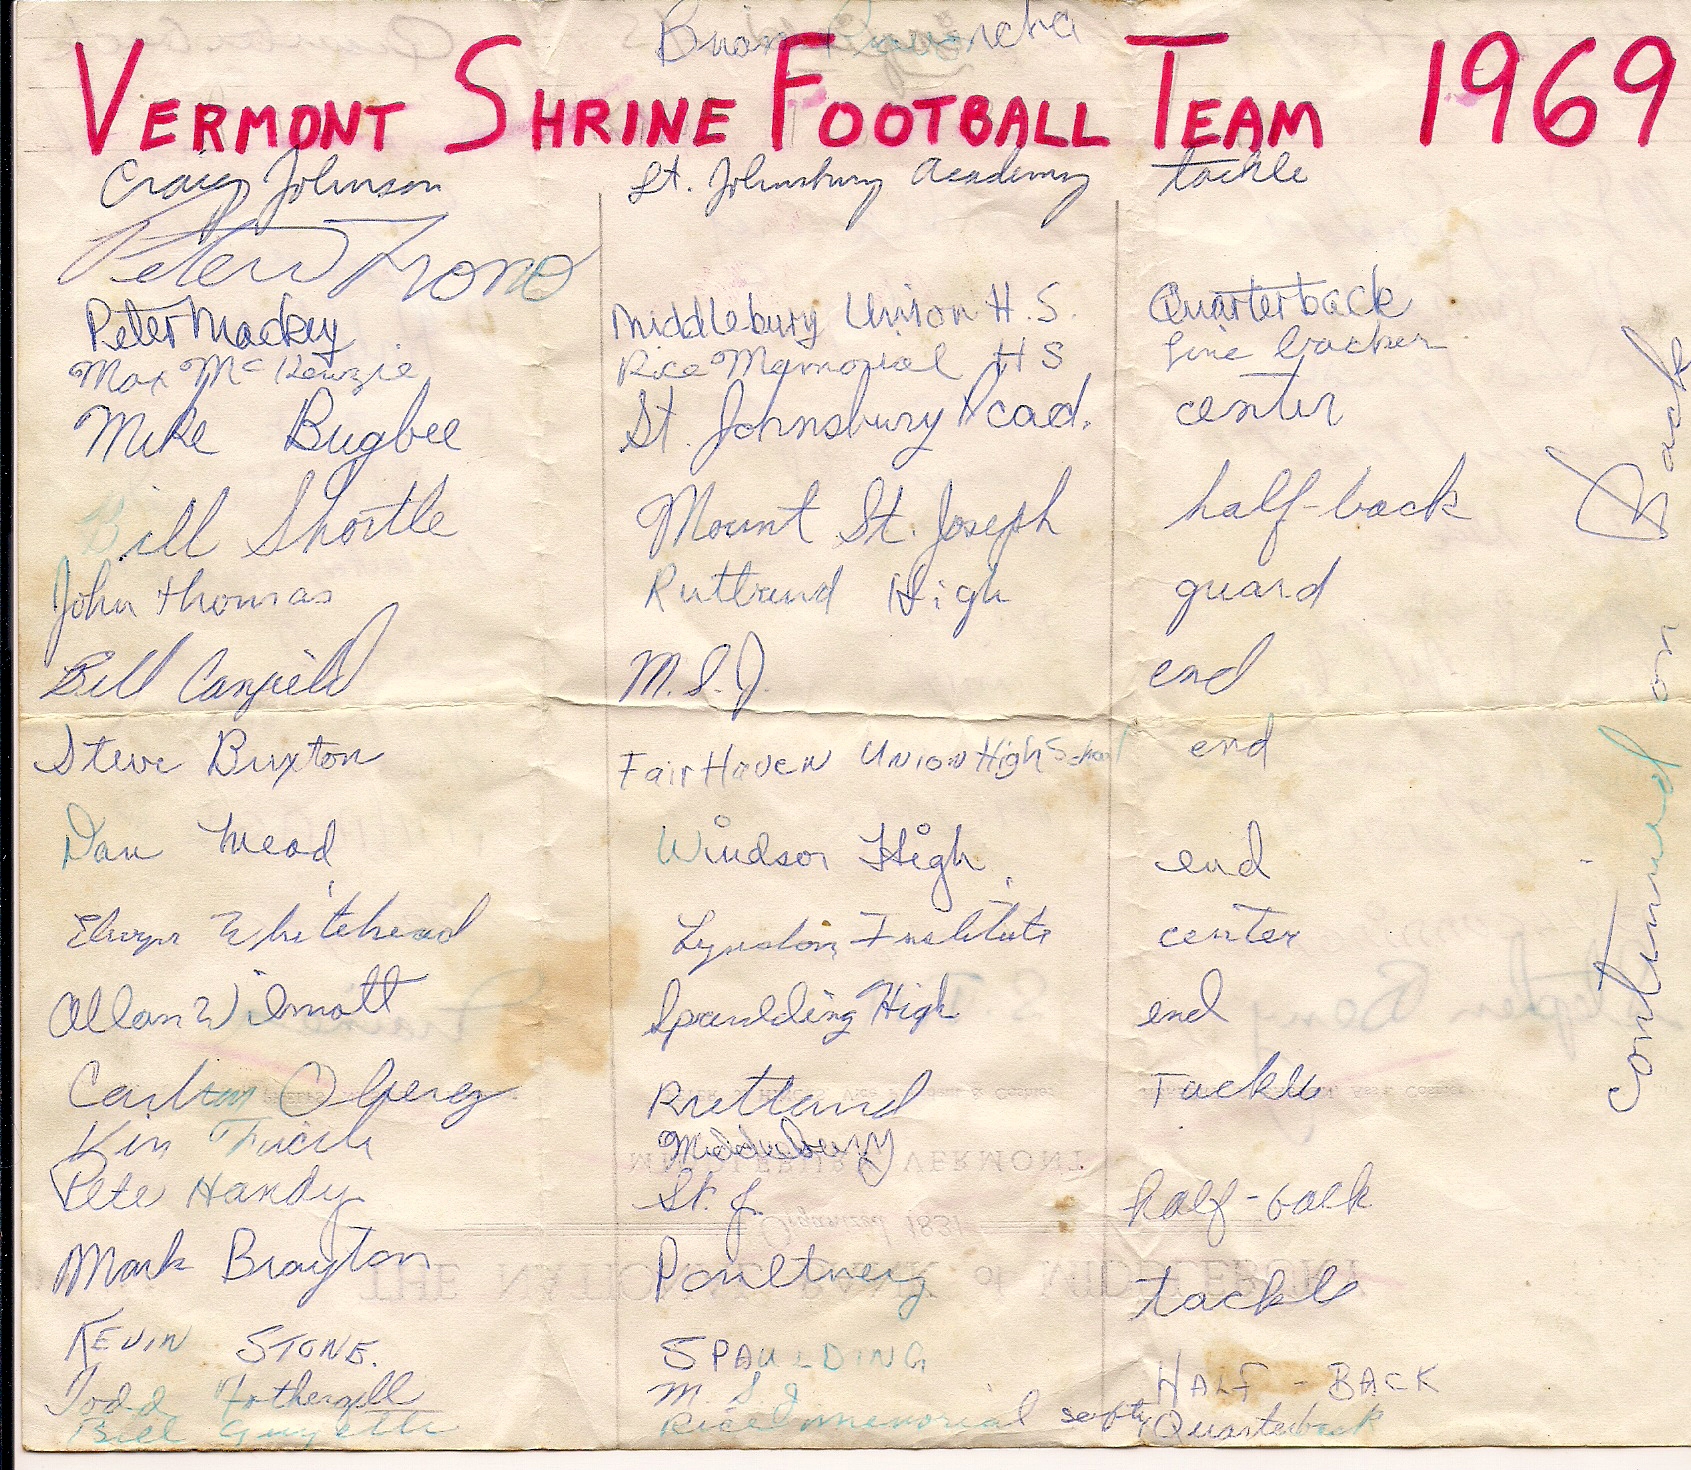 Brian
VERMONT SHRINE FOOTBALL TEAM 1969
Craig Johnson St. Johnsbury Academy tackle
Peter Trono
Peter Mackey Middlebury Union H.S. Quarterback
Max McKenzie Rice Memorial HS line backer
Mike Bugbee St. Johnsbury Acad. center
Bill Shortle Mount St. Joseph half-back
John Thomas Rutland High guard
Bill Canfield M.S.J. end
Steve Buxton Fair Haven Union High School end
Dan Mead Windsor High end
Elwyn Whitehead Lyndon Institute center
Allan Wilmott Spaulding High end
Carlton Rutland Tackle
Middlebury
Pete Handy St. J. half-back
Mark Brayton Poultney tackle
KEVIN STONE. SPAULDING HALF-BACK
Todd Fothergill M S J
Bill Guyette Rice Memorial safty Quarterback
continued on Back
Stephen
MIDDLEBURY, VERMONT
Organized 1831
THE NATIONAL BANK of MIDDLEBURY